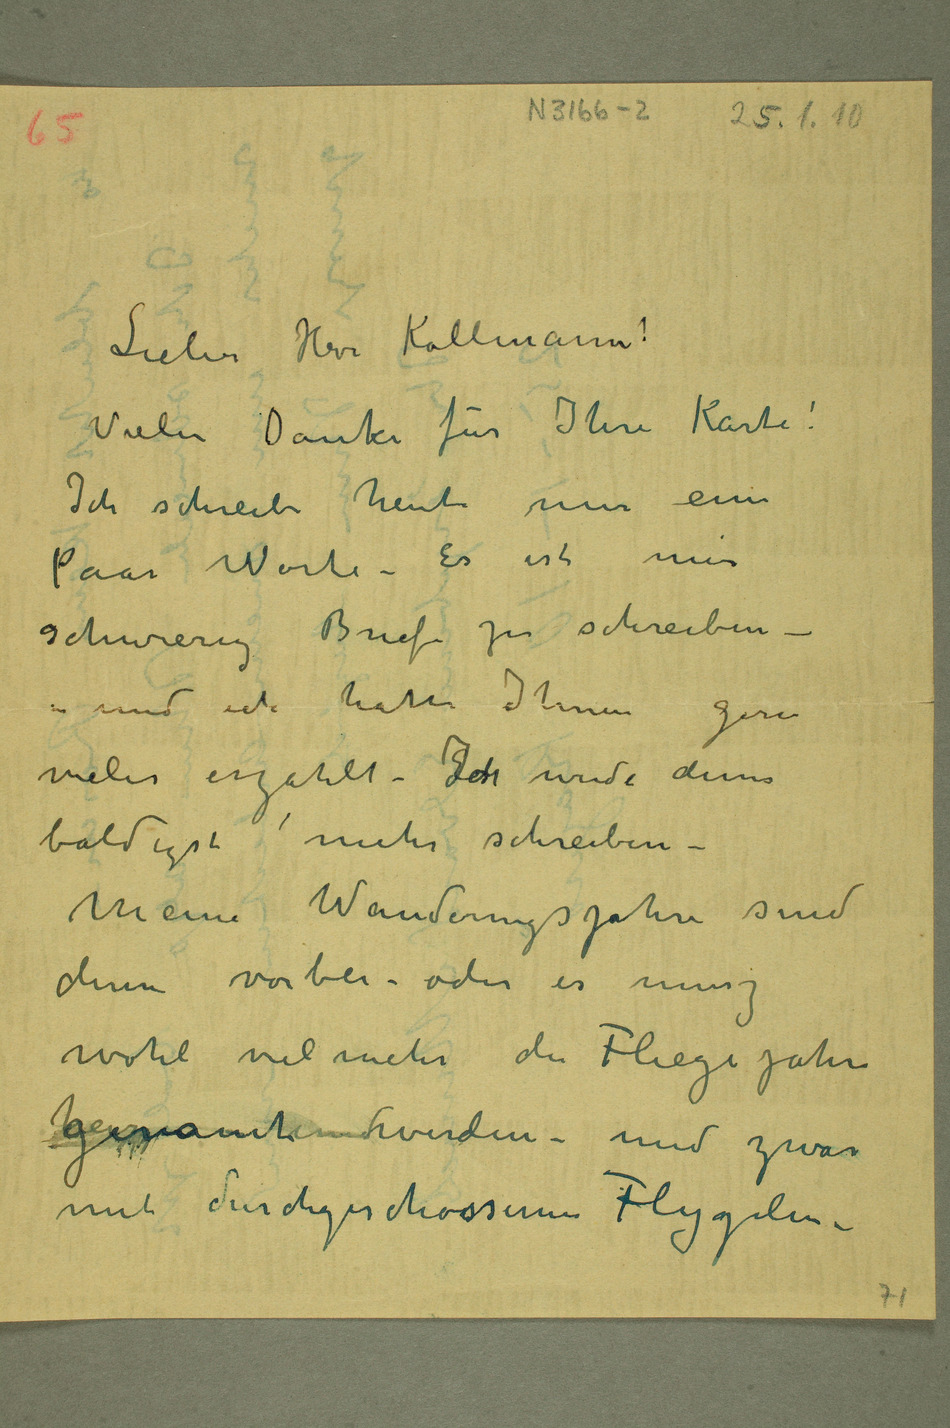 65
N3166-2 25.1.10
Lieber Herr Kollmann!
Vielen Danke für Ihre Karte!
Ich schreibe heute nur ein
paar Worte – Es ist mir
schwierig Briefe zu schreiben –
– und ich hatte Ihnen gern
vieles erzahlt – Ich werde denn
baldigst mehr schreiben –
Meine Wanderungsjahre sind
denn vorbei – oder es musz
wohl vielmehr die Fliegejahre
genannt werden – und zwar
mit durchgeschossenen Flygelen –
71